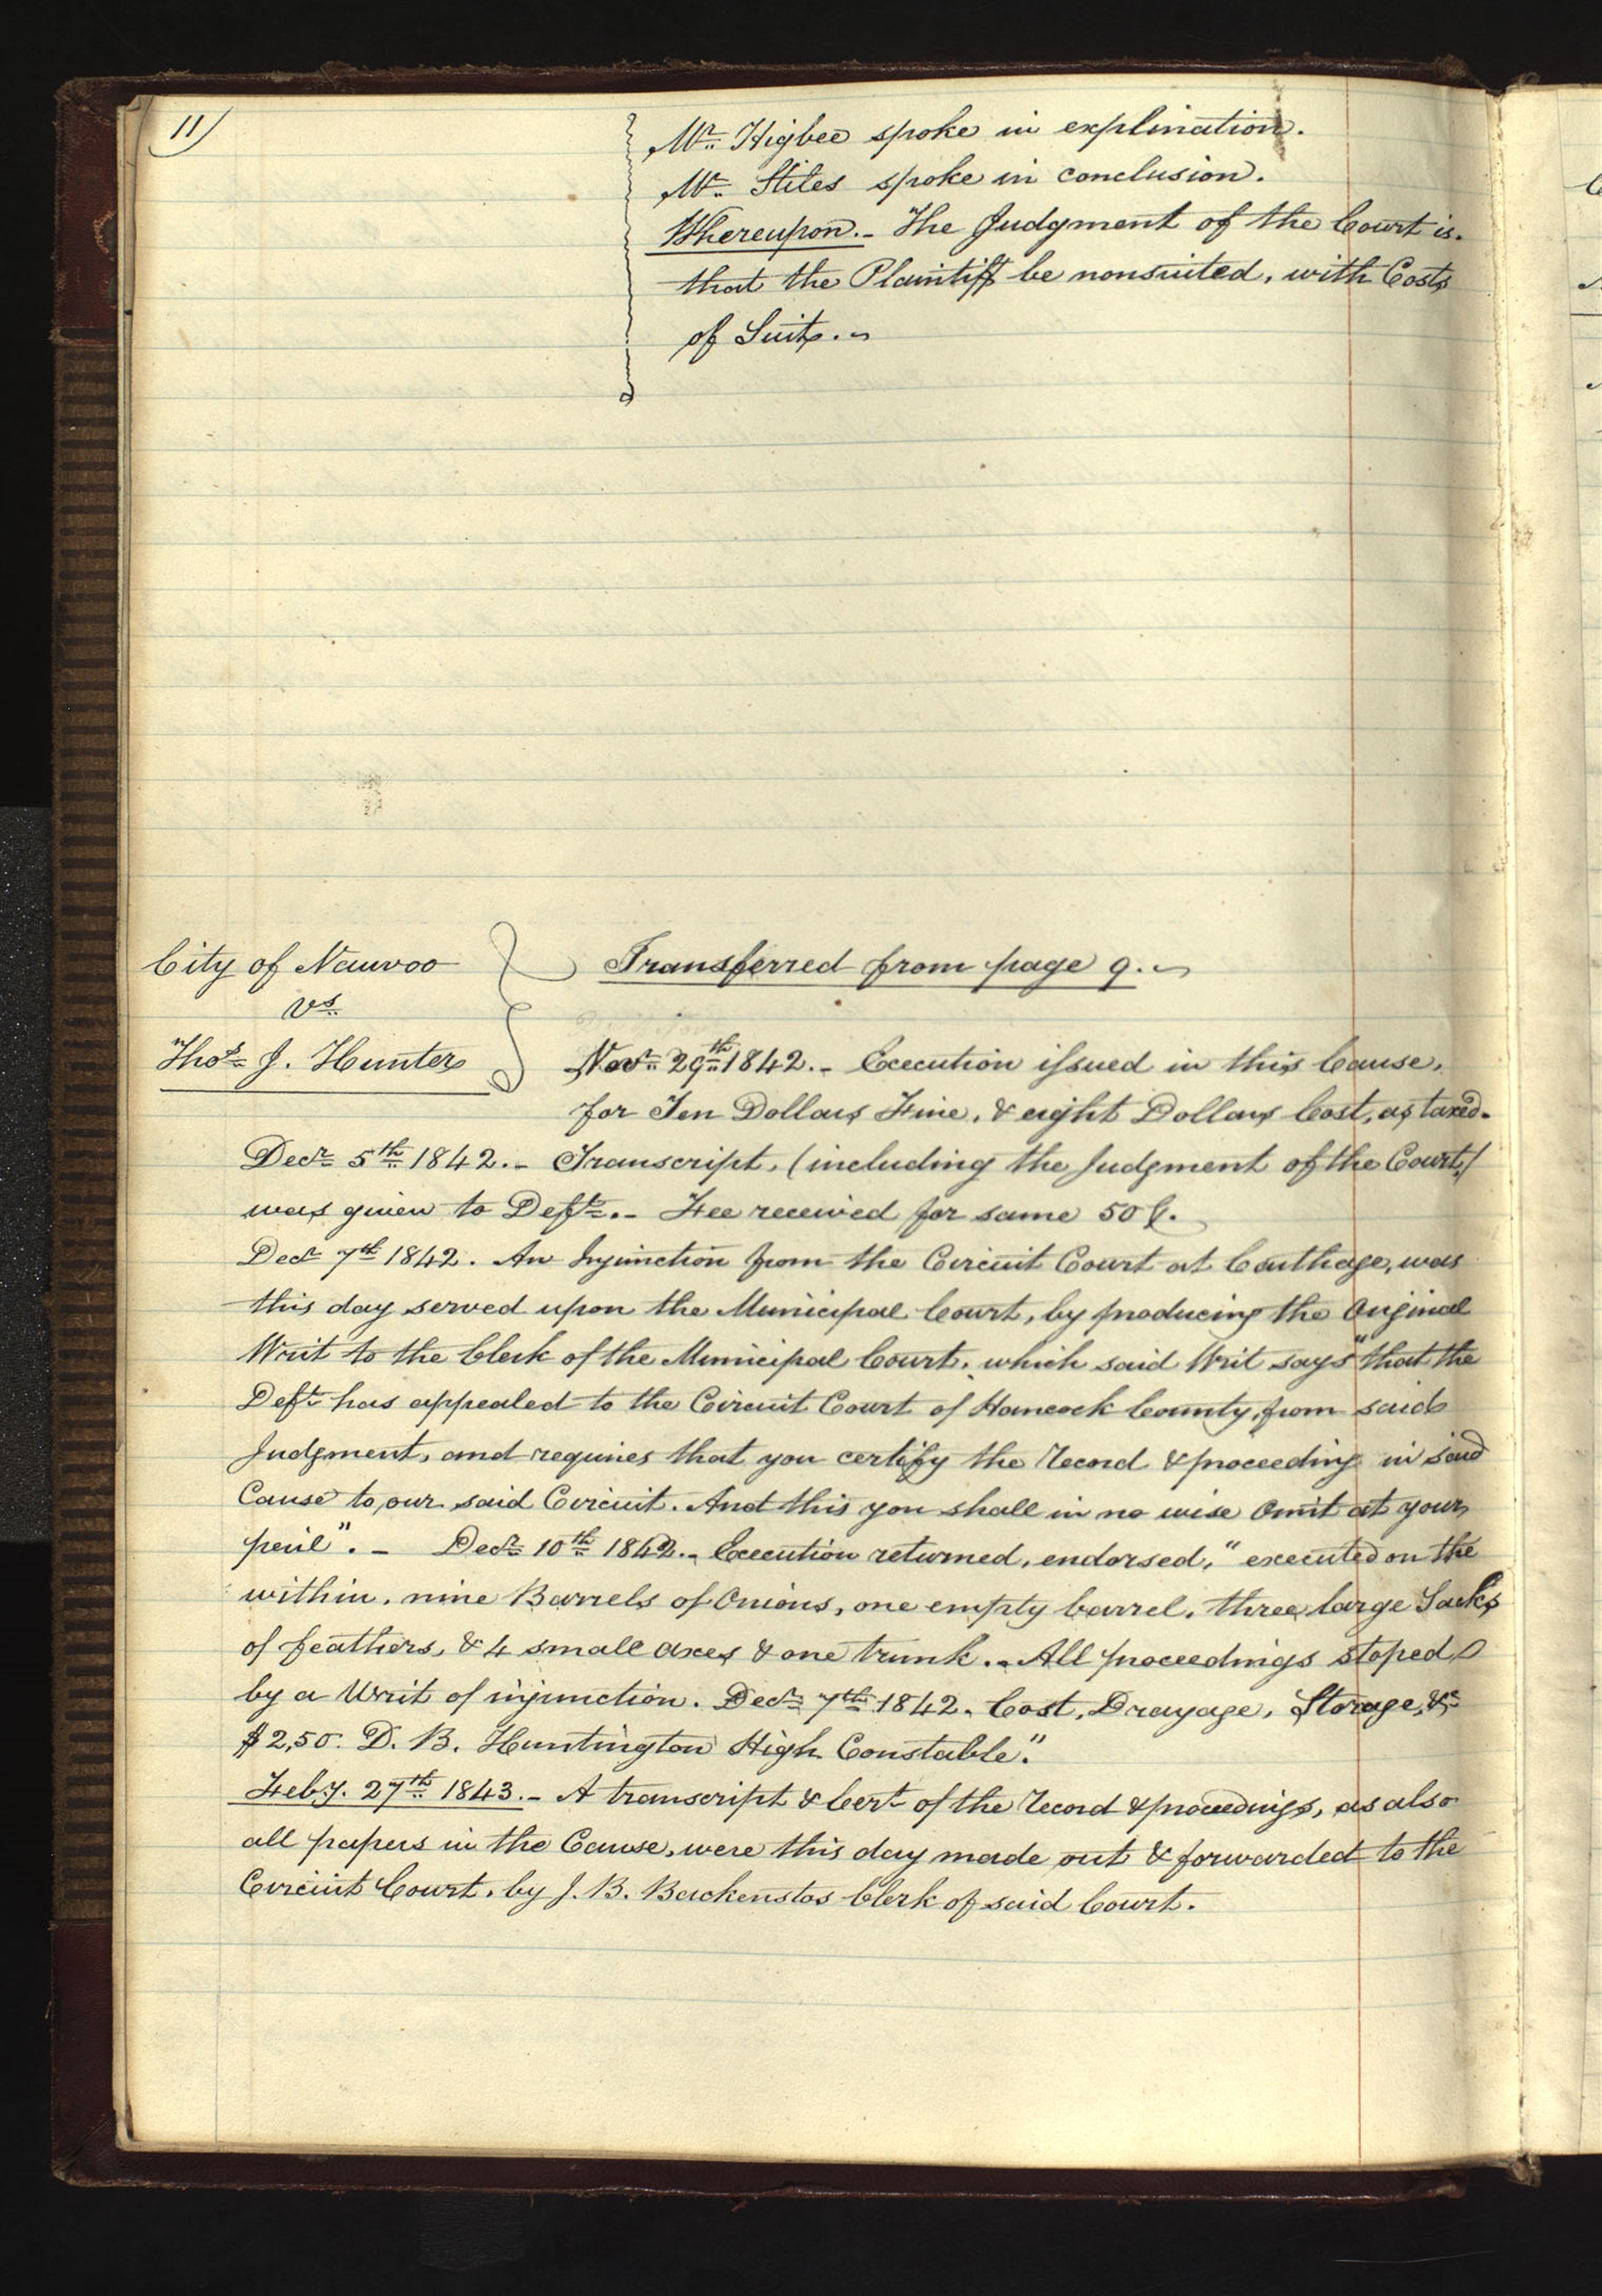 11)
Mr. Higbee spoke in explination.
Mr. Stiles spoke in conclusion.
Whereupon.- The Judgment of the Court is.
that the Plaintiff be nonsuited, with Costs
of Suit.
City of Nauvoo
vs.
Thos. J. Hunter
Transferred from page 9.
Novr. 29th 1842.- Execution issued in this Cause,
for Ten Dollars Fine, & eight Dollars Cost, as taxed.
Decr. 5th 1842.- Transcript, (including the Judgment of the Court,)
was given to Deft.- Fee received for same 50 ¢.
Decr. 7th 1842. An Injunction from the Circuit Court at Carthage, was
this day served upon the Municipal Court, by producing the Original
Writ to the Clerk of the Municipal Court, which said Writ says "that the
Deft. has appealed to the Circuit Court of Hancock County, from said
Judgment, and requires that you certify the Record & proceeding in said
Cause to our said Circuit. And this you shall in no wise Omit at your
peril".- Decr. 10th 1842.- Execution returned, endorsed, "executed on the
within, nine Barrels of Onions, one empty barrel, three large Sacks
of feathers, & 4 small axes & one trunk.- All proceedings stoped
by a Writ of injunction. Decr. 7th 1842. Cost, Drayage, Storage, &c
$2,50. D. B. Huntington High Constable."
Feby. 27th 1843.- A transcript & Cert. of the Record & proceedings, as also
all papers in the Cause, were this day made out & forwarded to the
Circuit Court, by J. B. Backenstos Clerk of said Court.